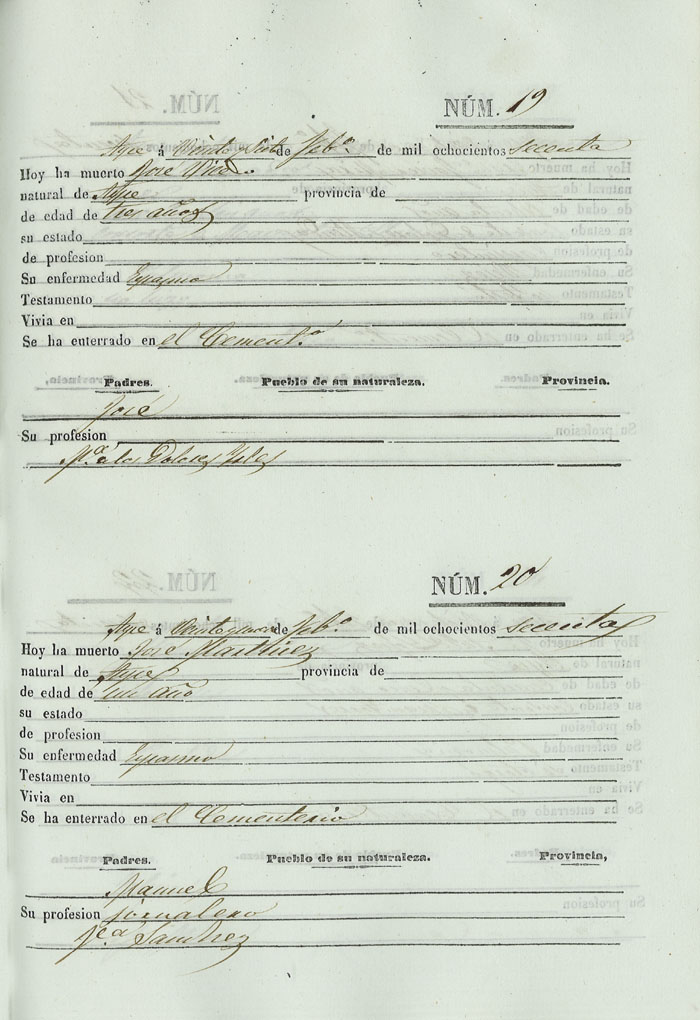 NÚM. 19
Aspe á Veinte y Siete de Feb.º de mil ochocientos sesenta
Hoy ha muerto José
natural de Aspe provincia de
de edad de tres años
su estado
de profesion
Su enfermedad Espasmo
Testamento
Vivia en
Se ha enterrado en el Cement.º
Padres. Pueblo de su naturaleza. Provincia.
José
Su profesion
M.ª de los Dolores
NÚM. 20
Aspe á Veinte y nueve de Feb.º de mil ochocientos sesenta
Hoy ha muerto José Martinez
natural de Aspe provincia de
de edad de un año
su estado
de profesion
Su enfermedad Espasmo
Testamento
Vivia en
Se ha enterrado en el Cementerio
Padres. Pueblo de su naturaleza. Provincia,
Manuel
Su profesion jornalero
Sanchez